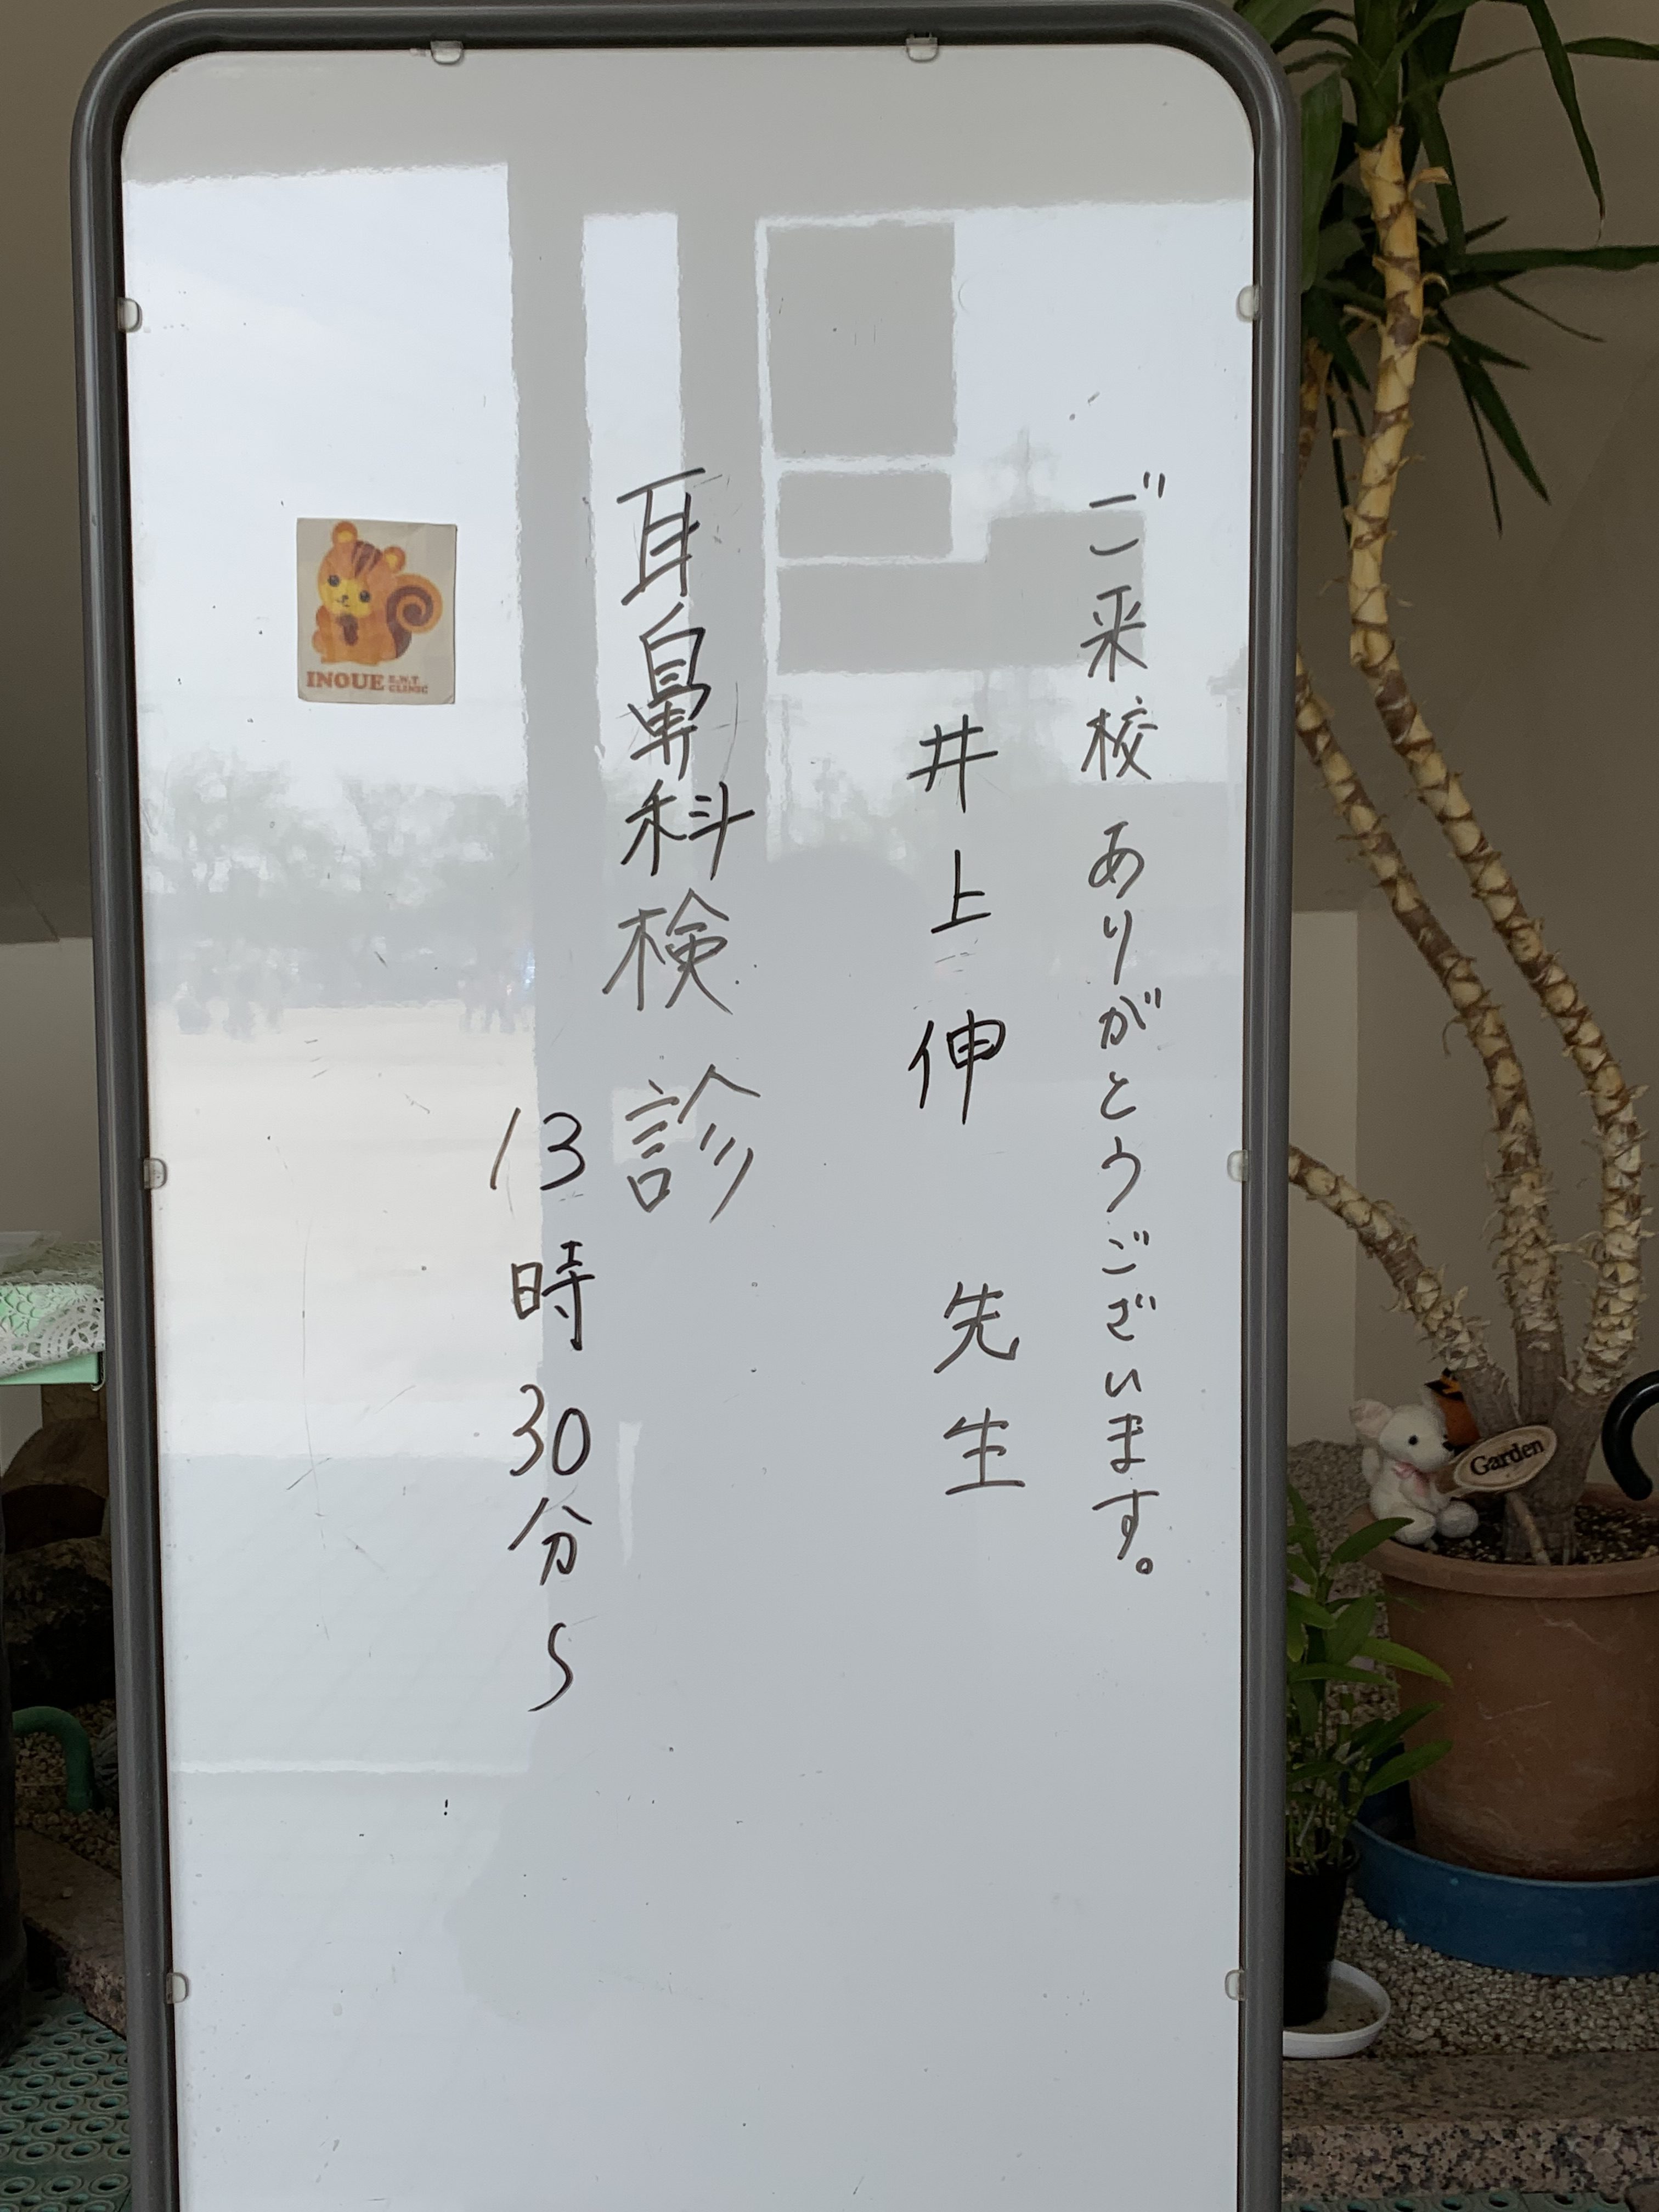 ご来校ありがとうございます。
井上伸 先生
耳鼻科検診
13時30分〜
INOUE E.N.T CLINIC
Garden